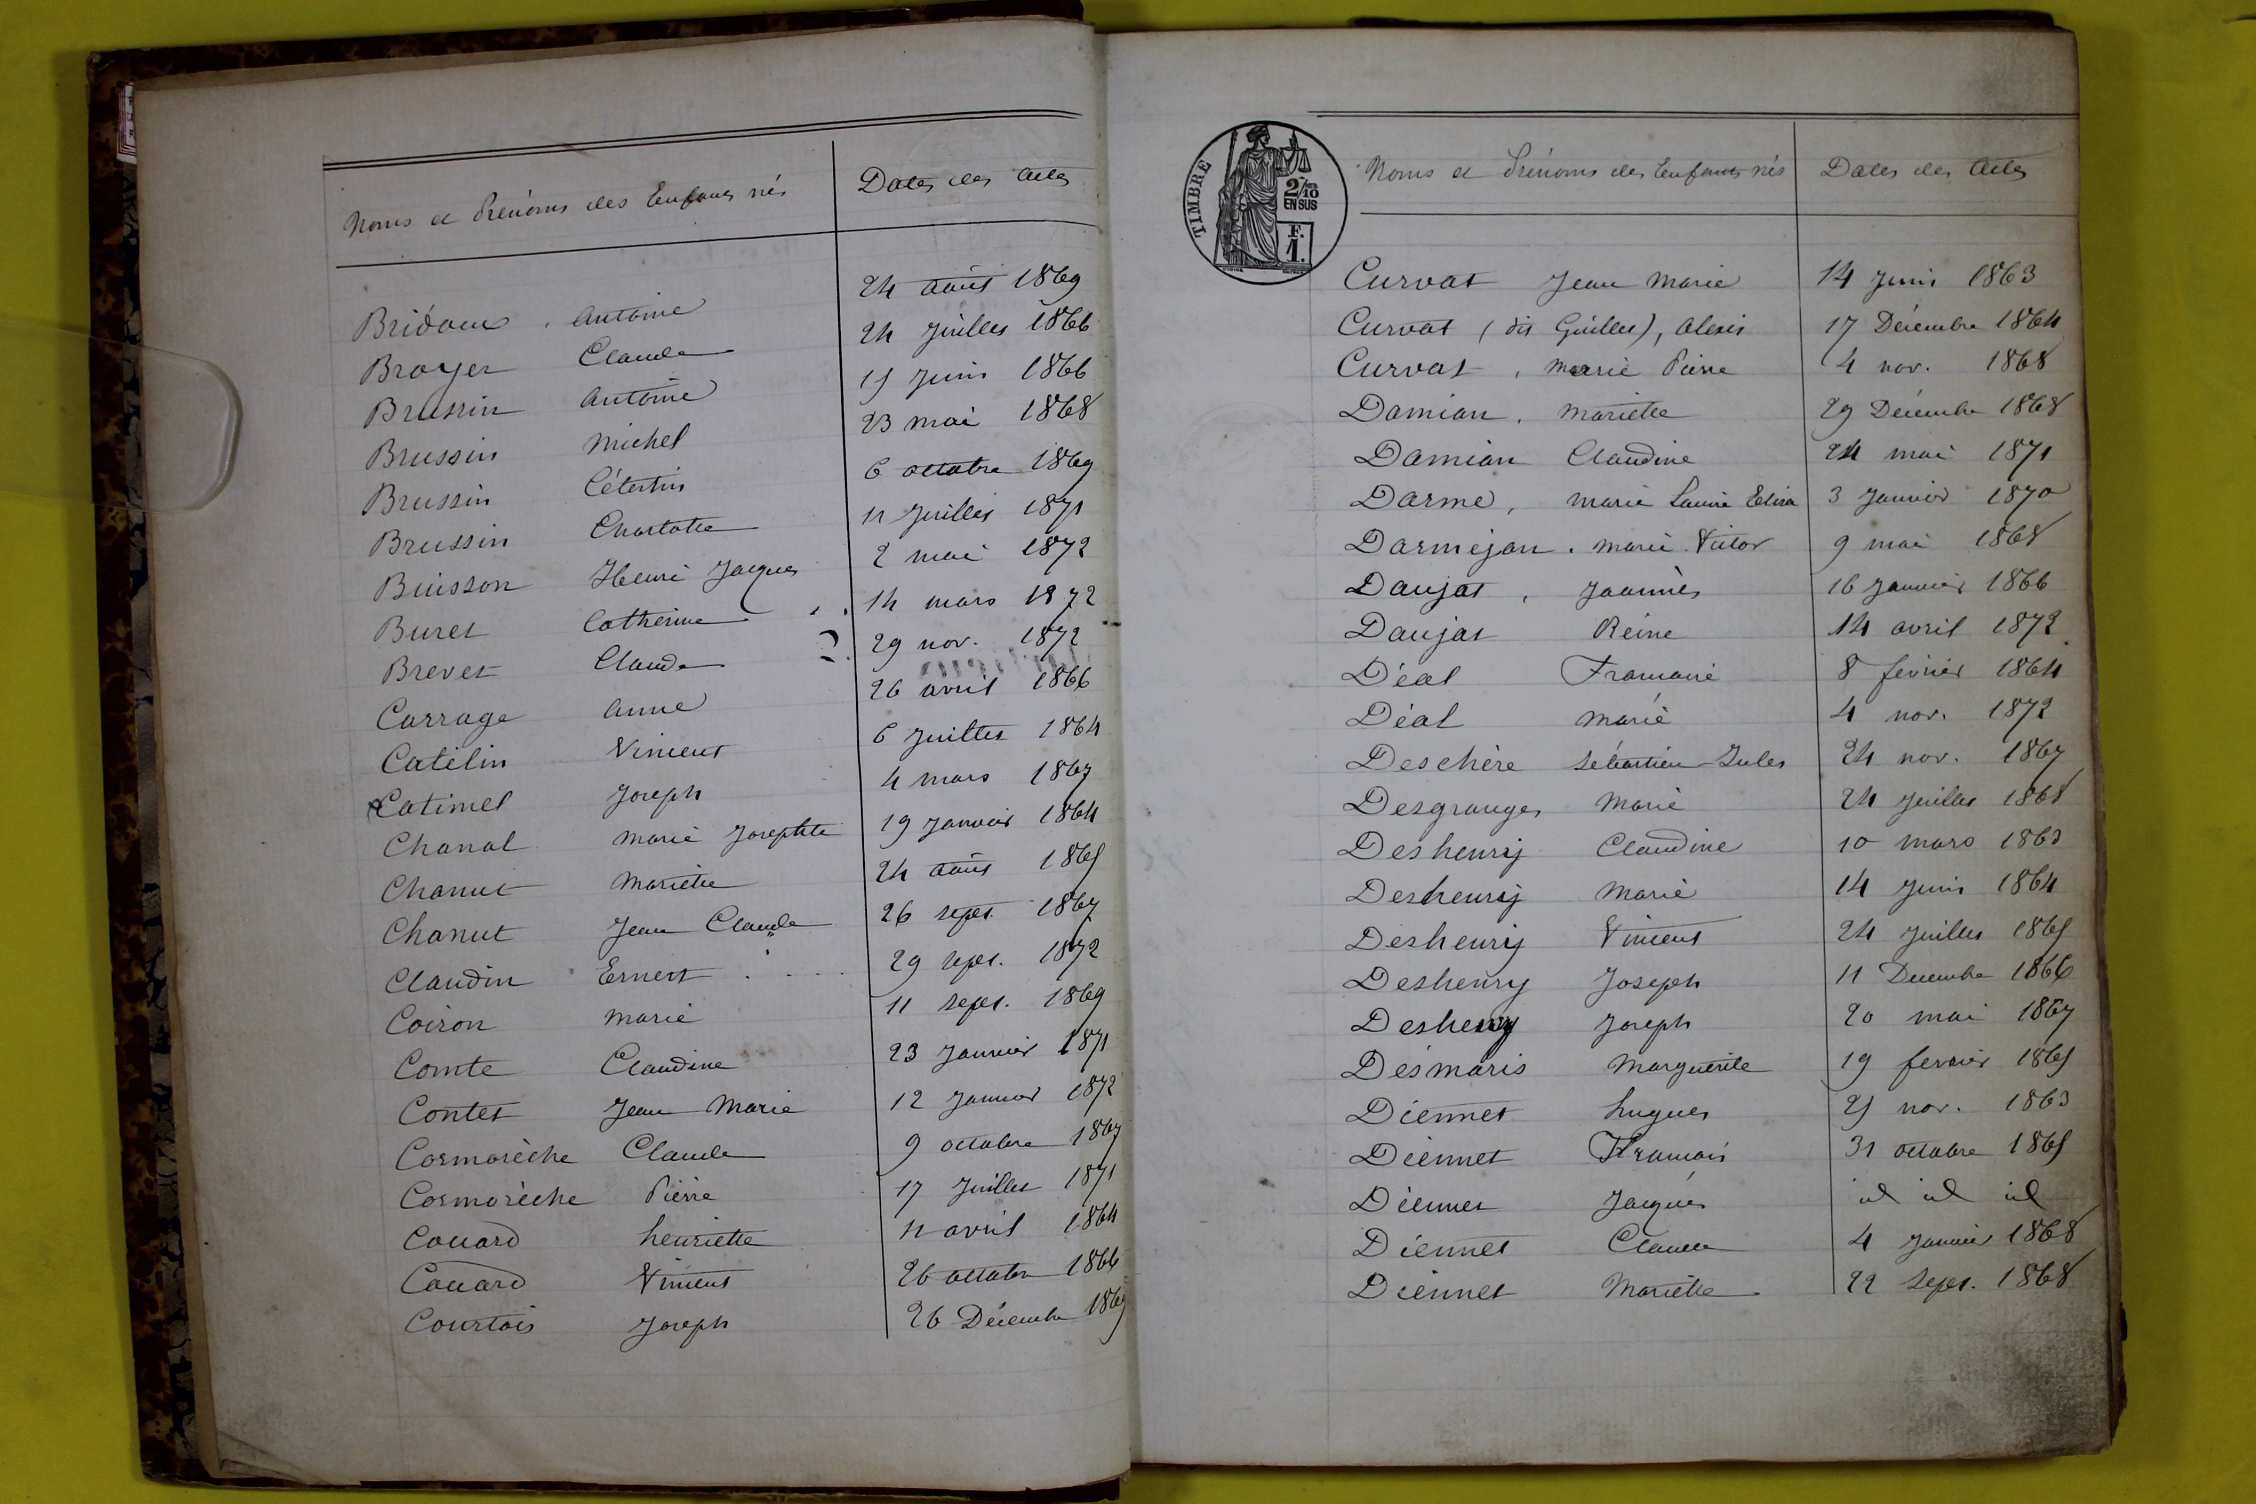 Noms et Prénoms des Enfants nés Dates des Actes
Bridoux, Antoine 24 août 1869
Broyer Claude 24 Juillet 1866
Brussin Antoine 15 Juin 1866
Brussin Michel 23 mai 1868
Brussin Célestin 6 octobre 1869
Brussin Charlotte 11 Juillet 1871
Buisson Henri Jacques 2 mai 1872
Buret Catherine 14 mars 1872
Brevet Claude 29 nov. 1872
Carrage Anne 26 avril 1866
Catélin Vincent 6 Juillet 1864
Catimel Joseph 4 mars 1867
Chanal Marie Josephte 19 Janvier 1864
Chanut Mariette 24 août 1865
Chanut Jean Claude 26 sept. 1867
Claudin Ernest 29 sept. 1872
Coiron Marie 11 sept. 1869
Comte Claudine 23 Janvier 1871
Contet Jean Marie 12 Janvier 1872
Cormorèche Claude 9 octobre 1867
Cormorèche Pierre 17 Juillet 1871
Couard henriette 11 avril 1864
Couard Vincent 26 octobre 1866
Courtois Joseph 26 Décembre 1869
TIMBRE
2/10
EN SUS
F.
1.
Noms et Prénoms des Enfants nés Dates des Actes
Curvat Jean Marie 14 Juin 1863
Curvat (dit Guillet), Alexis 17 Décembre 1864
Curvat, Marie Pierre 4 nov. 1868
Damian, Mariette 29 Décembre 1868
Damian Claudine 24 mai 1871
Darme, Marie Laurie Elisa 3 Janvier 1870
Darmejan. Marie Victor 9 mai 1868
Daujat, Joannès 16 Janvier 1866
Daujat Reine 14 avril 1872
Déal Francoise 8 février 1864
Déal Marie 4 nov. 1872
Deschère Sébastien-Jules 24 nov. 1867
Desgranges Marie 24 Juillet 1868
Deshenry Claudine 10 mars 1863
Deshenry Marie 14 Juin 1864
Deshenry Vincent 24 Juillet 1865
Deshenry Joseph 11 Decembre 1866
Deshenry Joseph 20 mai 1867
Désmaris Marguerite 19 fevrier 1865
Diennet hugues 25 nov. 1863
Diennet Francois 31 octobre 1865
Diennet Jacques id id id
Diennet Claude 4 Janvier 1868
Diennet Mariette 22 Sept. 1868